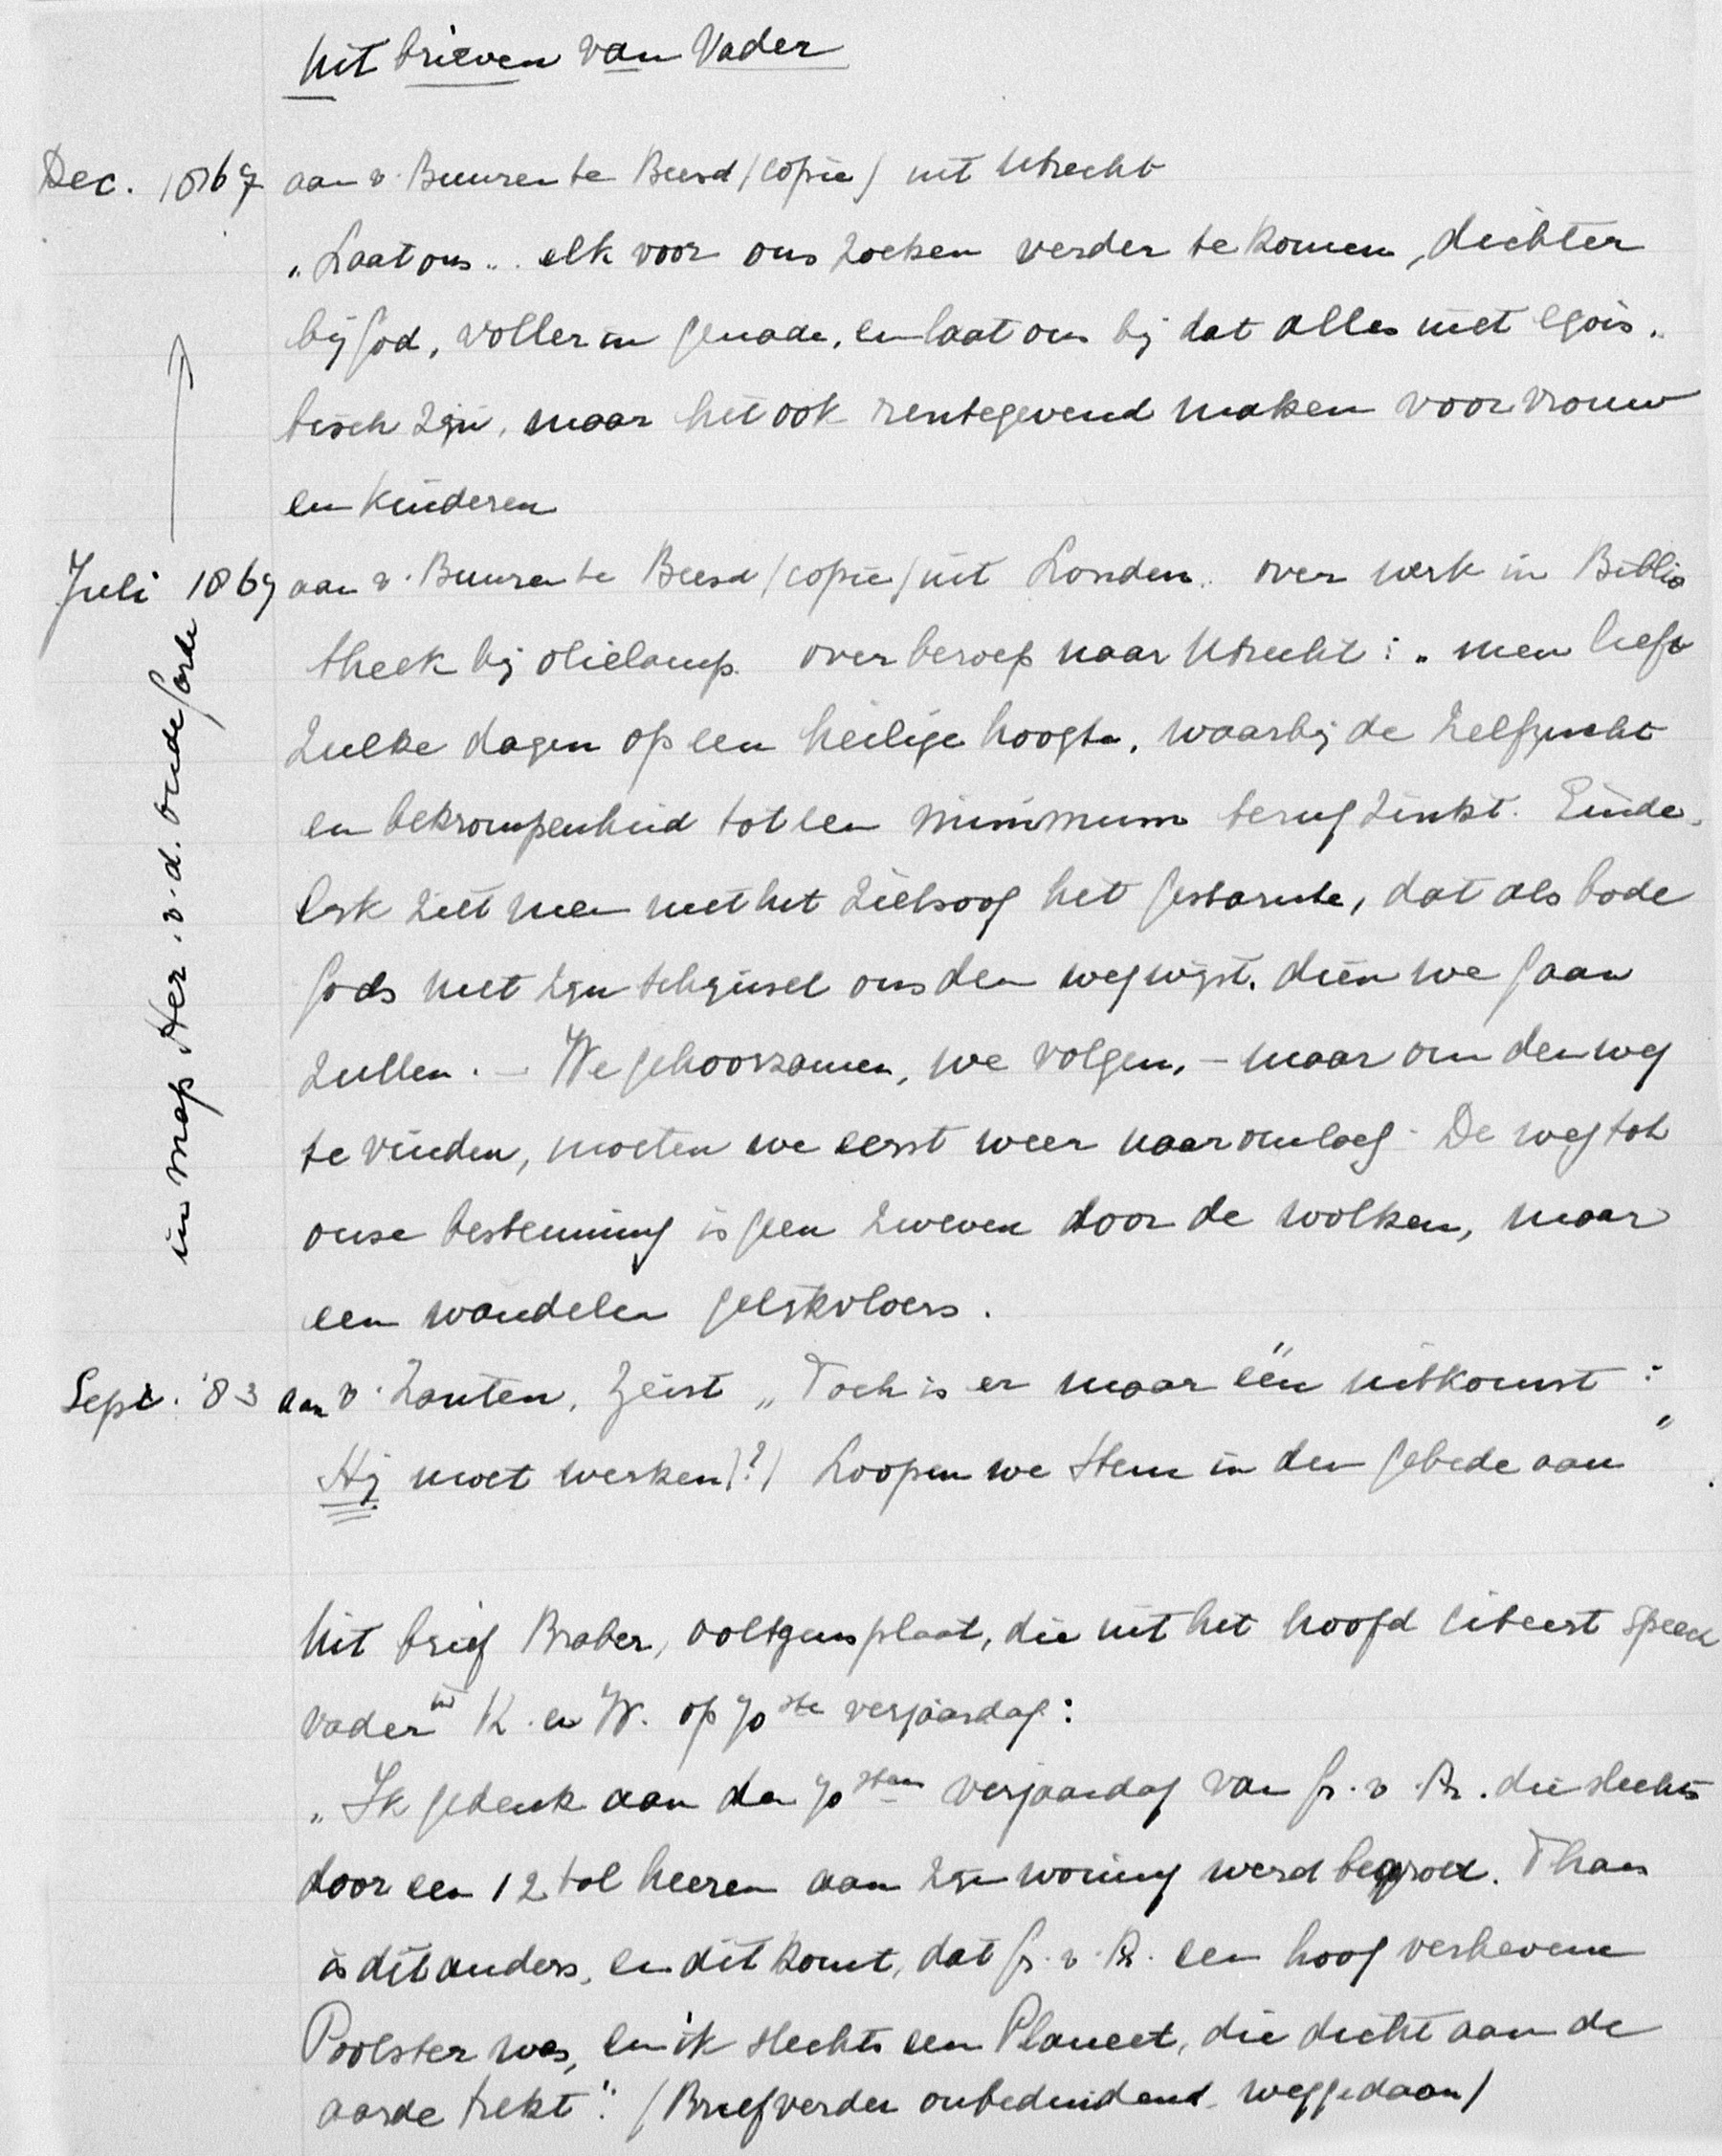 Uit brieven van Vader
Dec. 1867 aan v. Buuren te Beesd (copie) uit Utrecht
„Laat ons .. elk voor ons zoeken verder te komen, dichter
bij God, voller in genade, en laat ons bij dat alles niet egois„
tisch zijn, maar het ook rentegevend maken voor vrouw
en kinderen
Juli 1869 aan v. Buuren te Beesd (copie) uit Londen. over werk in Biblio
theek bij olielamp. over beroep naar Utrecht: „men leeft
zulke dagen op een heilige hoogte, waarbij de zelfzucht
en bekrompenheid tot een minimum terug zinkt. Einde„
lijk ziet men met het zielsoog het gestarnte, dat als bode
Gods met zijn schijnsel ons den weg wijst, dien we gaan
zullen. — We gehoorzamen, we volgen, — maar om den weg
te vinden, moeten we eerst weer naar omlaag - De weg tot
onse bestemming is geen zweven door de wolken, maar
een wandelen gelijkvloers.
in map Her. v. d. oude garde
Sept. '83 aan v. Zanten, Zeist „Toch is er maar één uitkomst:
Hij moet werken(?) Loopen we Hem in den gebede aan"
Uit brief Braber, Ooltgensplaat, die uit het hoofd citeert speech
vader in K. en W. op 70ste verjaardag:
„Ik gedenk aan den 70sten verjaardag van Gr. v. Pr. die slechts
door een 12 tal heeren aan zijn woning werd begroet. Thans
is dit anders, en dit komt, dat Gr. v. Pr. een hoog verhevene
Poolster was, en ik slechts een Planeet, die dicht aan de
aarde trekt". (Brief verder onbeduidend, weggedaan)